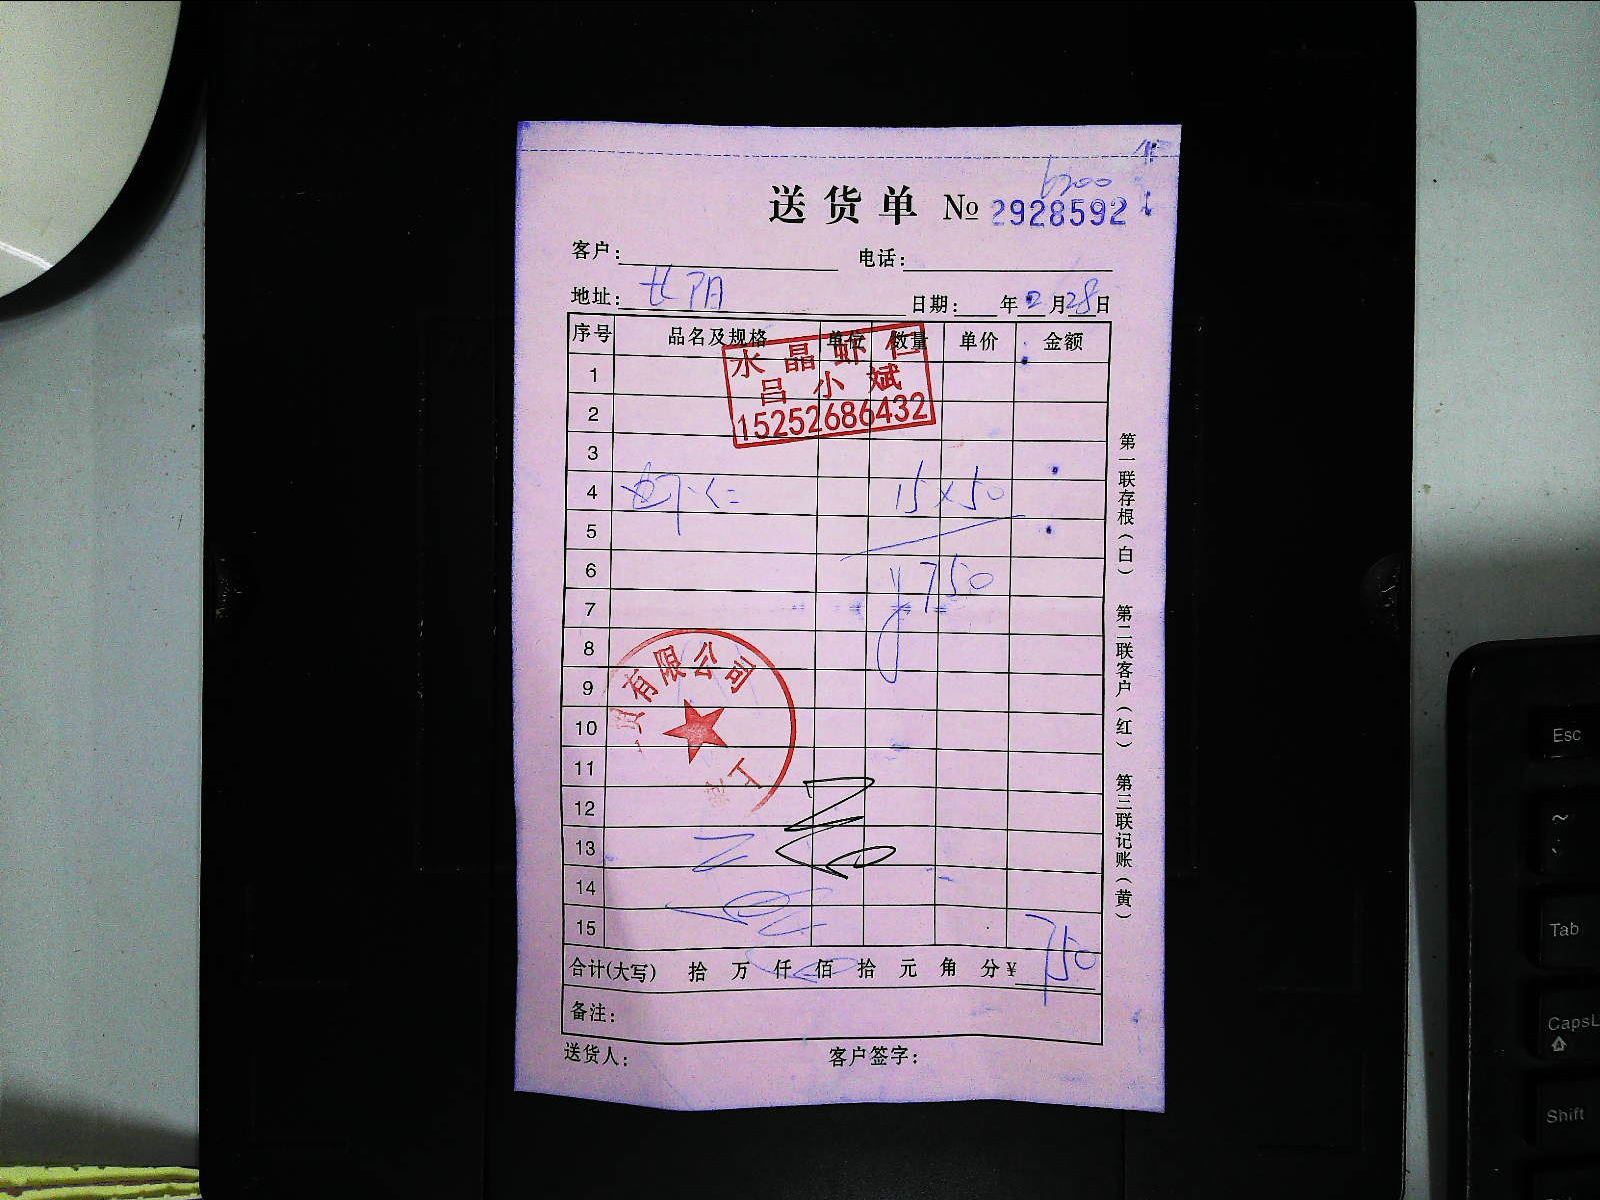 送货单 № 2928592
客户： 电话：
地址： 日期： 年 2 月 28 日
序号 品名及规格 单位 数量 单价 金额
水晶虾仁
吕小斌
15252686432
1
2
3
4 虾仁 15×50
5
6 ¥750
7
8
9
10
11
12
13
14
15
有限公司
合计(大写) 拾 万 仟 佰 拾 元 角 分 ¥ 750
备注：
送货人： 客户签字：
第一联存根（白） 第二联客户（红） 第三联记账（黄）
Esc
~
Tab
CapsL
Shift